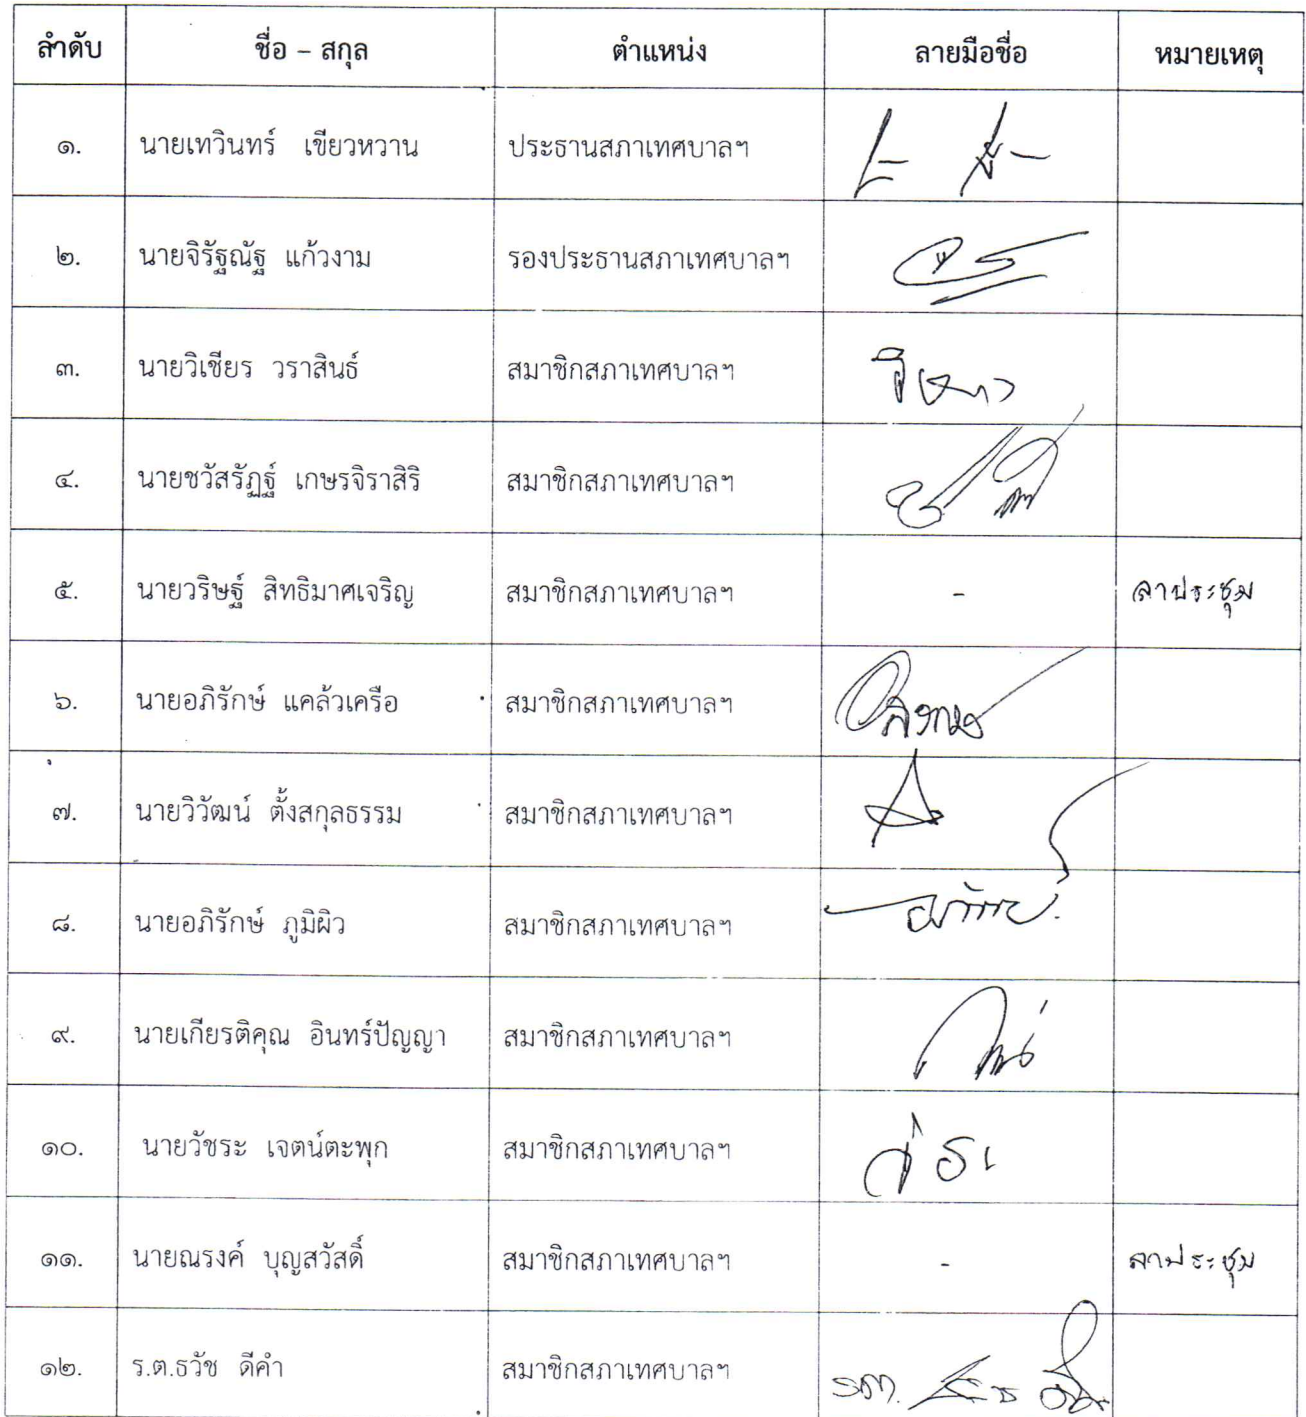 ลำดับ ชื่อ – สกุล ตำแหน่ง ลายมือชื่อ หมายเหตุ
๑. นายเทวินทร์ เขียวหวาน ประธานสภาเทศบาลฯ
๒. นายจิรัฐณัฐ แก้วงาม รองประธานสภาเทศบาลฯ
๓. นายวิเชียร วราสินธ์ สมาชิกสภาเทศบาลฯ
๔. นายชวัสรัฏฐ์ เกษรจิราสิริ สมาชิกสภาเทศบาลฯ
๕. นายวริษฐ์ สิทธิมาศเจริญ สมาชิกสภาเทศบาลฯ - ลาประชุม
๖. นายอภิรักษ์ แคล้วเครือ สมาชิกสภาเทศบาลฯ
๗. นายวิวัฒน์ ตั้งสกุลธรรม สมาชิกสภาเทศบาลฯ
๘. นายอภิรักษ์ ภูมิผิว สมาชิกสภาเทศบาลฯ
๙. นายเกียรติคุณ อินทร์ปัญญา สมาชิกสภาเทศบาลฯ
๑๐. นายวัชระ เจตน์ตะพุก สมาชิกสภาเทศบาลฯ
๑๑. นายณรงค์ บุญสวัสดิ์ สมาชิกสภาเทศบาลฯ - ลาประชุม
๑๒. ร.ต.ธวัช ดีคำ สมาชิกสภาเทศบาลฯ รต.